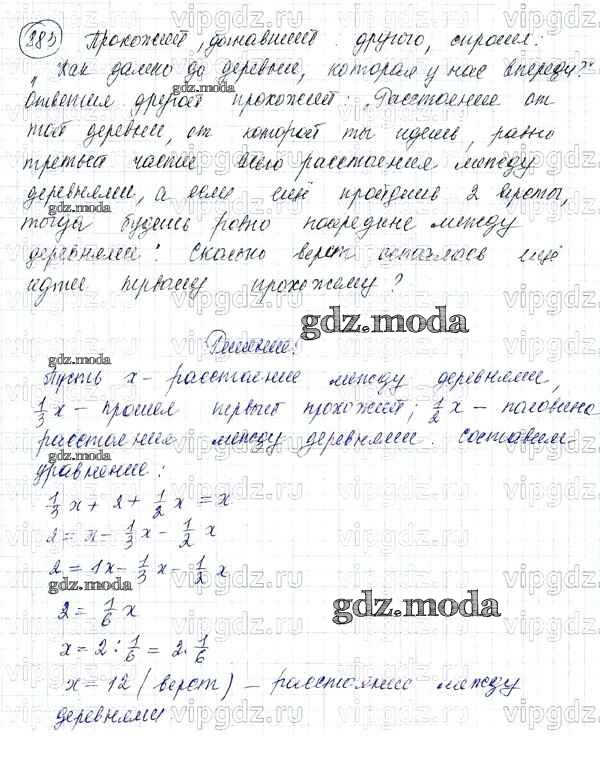 383 Прохожий, догнавший другого, спросил:
"Как далеко до деревни, которая у нас впереди?"
Ответил другой прохожий: "Расстояние от
той деревни, от которой ты идешь, равно
третьей части всего расстояния между
деревнями, а если ещё пройдешь 2 версты,
тогда будешь ровно посередине между
деревнями". Сколько верст осталось ещё
идти первому прохожему?
Решение:
Пусть x - расстояние между деревнями,
1/3 x - прошел первый прохожий; 1/2 x - половина
расстояния между деревнями. Составим
уравнение:
1/3 x + 2 + 1/2 x = x
2 = x - 1/3 x - 1/2 x
2 = 1x - 1/3 x - 1/2 x
2 = 1/6 x
x = 2 : 1/6 = 2 · 1/6
x = 12 (верст) - расстояние между
деревнями
gdz.moda
gdz.moda
gdz.moda
gdz.moda
gdz.moda
gdz.moda
gdz.moda
gdz.moda
vipgdz.ru